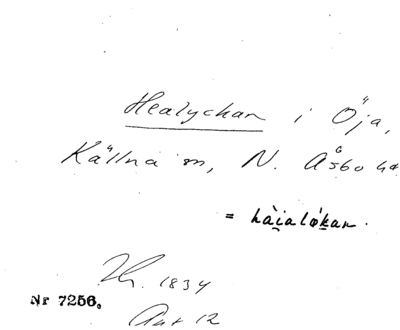 Healyckan i Öja,
Källna sn, N. Åsbo hd
= hàialókan.
1834
Nr 7256.
Ant 12